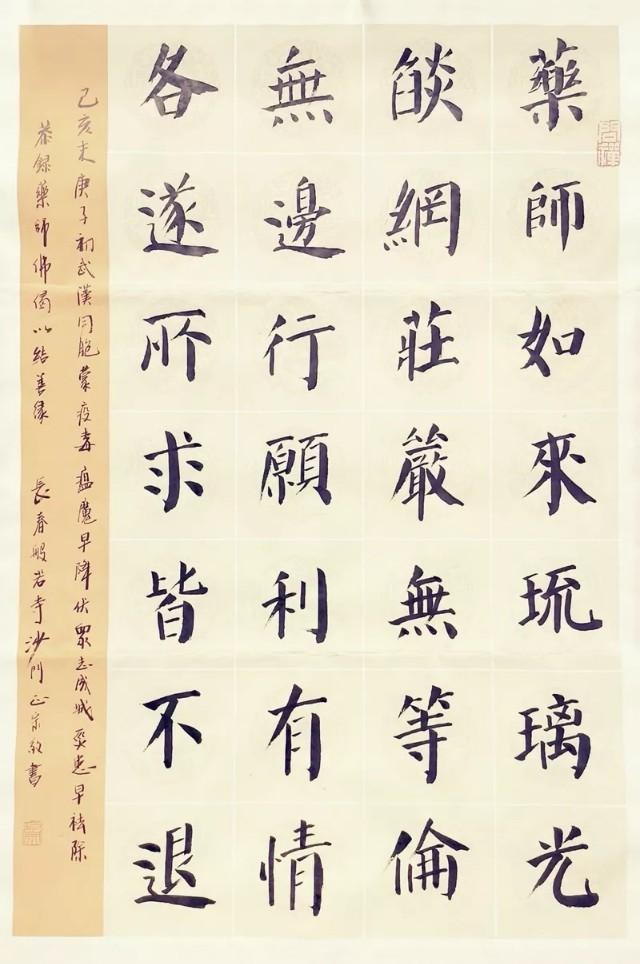 藥師如來琉璃光
燄網莊嚴無等倫
無邊行願利有情
各遂所求皆不退
己亥末庚子初武漢同胞蒙疫毒瘟魔早降伏眾志成城災患早祛除
恭錄藥師佛偈以結善緣 長春般若寺沙門正宗敬書